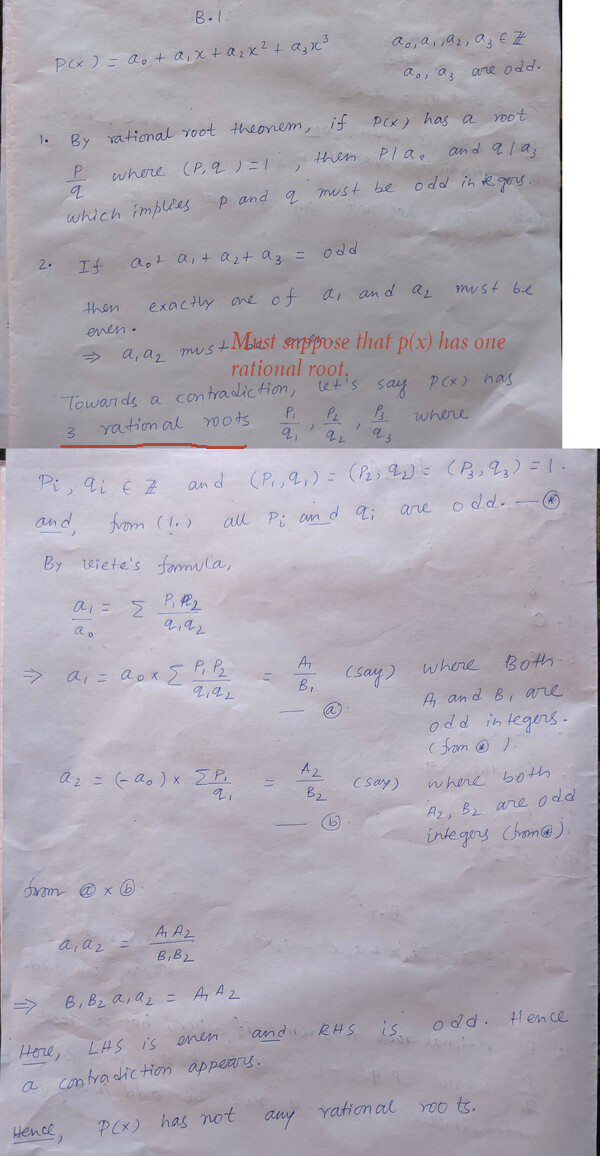 B.1.
P(x) = a₀ + a₁x + a₂x² + a₃x³ a₀, a₁, a₂, a₃ ∈ ℤ
a₀, a₃ are odd.
1. By rational root theorem, if P(x) has a root
P/q where (P, q) = 1, then P/a₀ and q/a₃
which implies p and q must be odd integers.
2. If a₀ + a₁ + a₂ + a₃ = odd
then exactly one of a₁ and a₂ must be
even.
⇒ a₁a₂ must be even
Must suppose that p(x) has one
rational root.
Towards a contradiction, let's say P(x) has
3 rational roots P₁/q₁, P₂/q₂, P₃/q₃ where
Pi, qi ∈ ℤ and (P₁, q₁) = (P₂, q₂) = (P₃, q₃) = 1.
and, from (1.) all Pi and qi are odd. — ⊛
By viete's formula,
a₁/a₀ = Σ P₁P₂/q₁q₂
⇒ a₁ = a₀ × Σ P₁P₂/q₁q₂ = A₁/B₁ (say) where Both
— ⓐ A₁ and B₁ are
odd integers.
(from ⊛).
a₂ = (-a₀) × Σ P₁/q₁ = A₂/B₂ (say) where both
— ⓑ A₂, B₂ are odd
integers (from ⊛)
from ⓐ × ⓑ.
a₁a₂ = A₁A₂/B₁B₂
⇒ B₁B₂a₁a₂ = A₁A₂
Here, LHS is even and RHS is odd. Hence
a contradiction appears.
Hence, P(x) has not any rational roots.